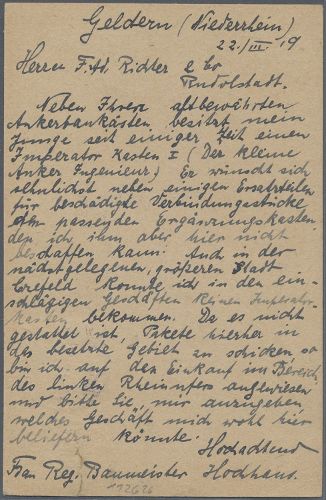 Geldern (Niederrhein)
22./III. 19
Herren F. Ad. Richter & Co
Rudolstadt.
Neben Ihren altbewährten
Ankerbaukästen besitzt mein
Junge seit einiger Zeit einen
Imperator Kasten I (Der kleine
Anker Ingenieur.) Er wünscht sich
sehnlichst neben einigen Ersatzteilen
für beschädigte Verbindungsstücke
den passenden Ergänzungskasten
den ich ihm aber hier nicht
beschaffen kann. Auch in der
nächstgelegenen, größeren Stadt
Crefeld konnte ich in den ein-
schlägigen Geschäften keinen Imperator-
kasten bekommen. Da es nicht
gestattet ist, Pakete hierher in
das besetzte Gebiet zu schicken, so
bin ich auf den Einkauf im Bereich
des linken Rheinufers angewiesen
und bitte Sie, mir anzugeben,
welches Geschäft mich wohl hier
beliefern könnte.
Hochachtend
Frau Reg. Baumeister Hochhaus.